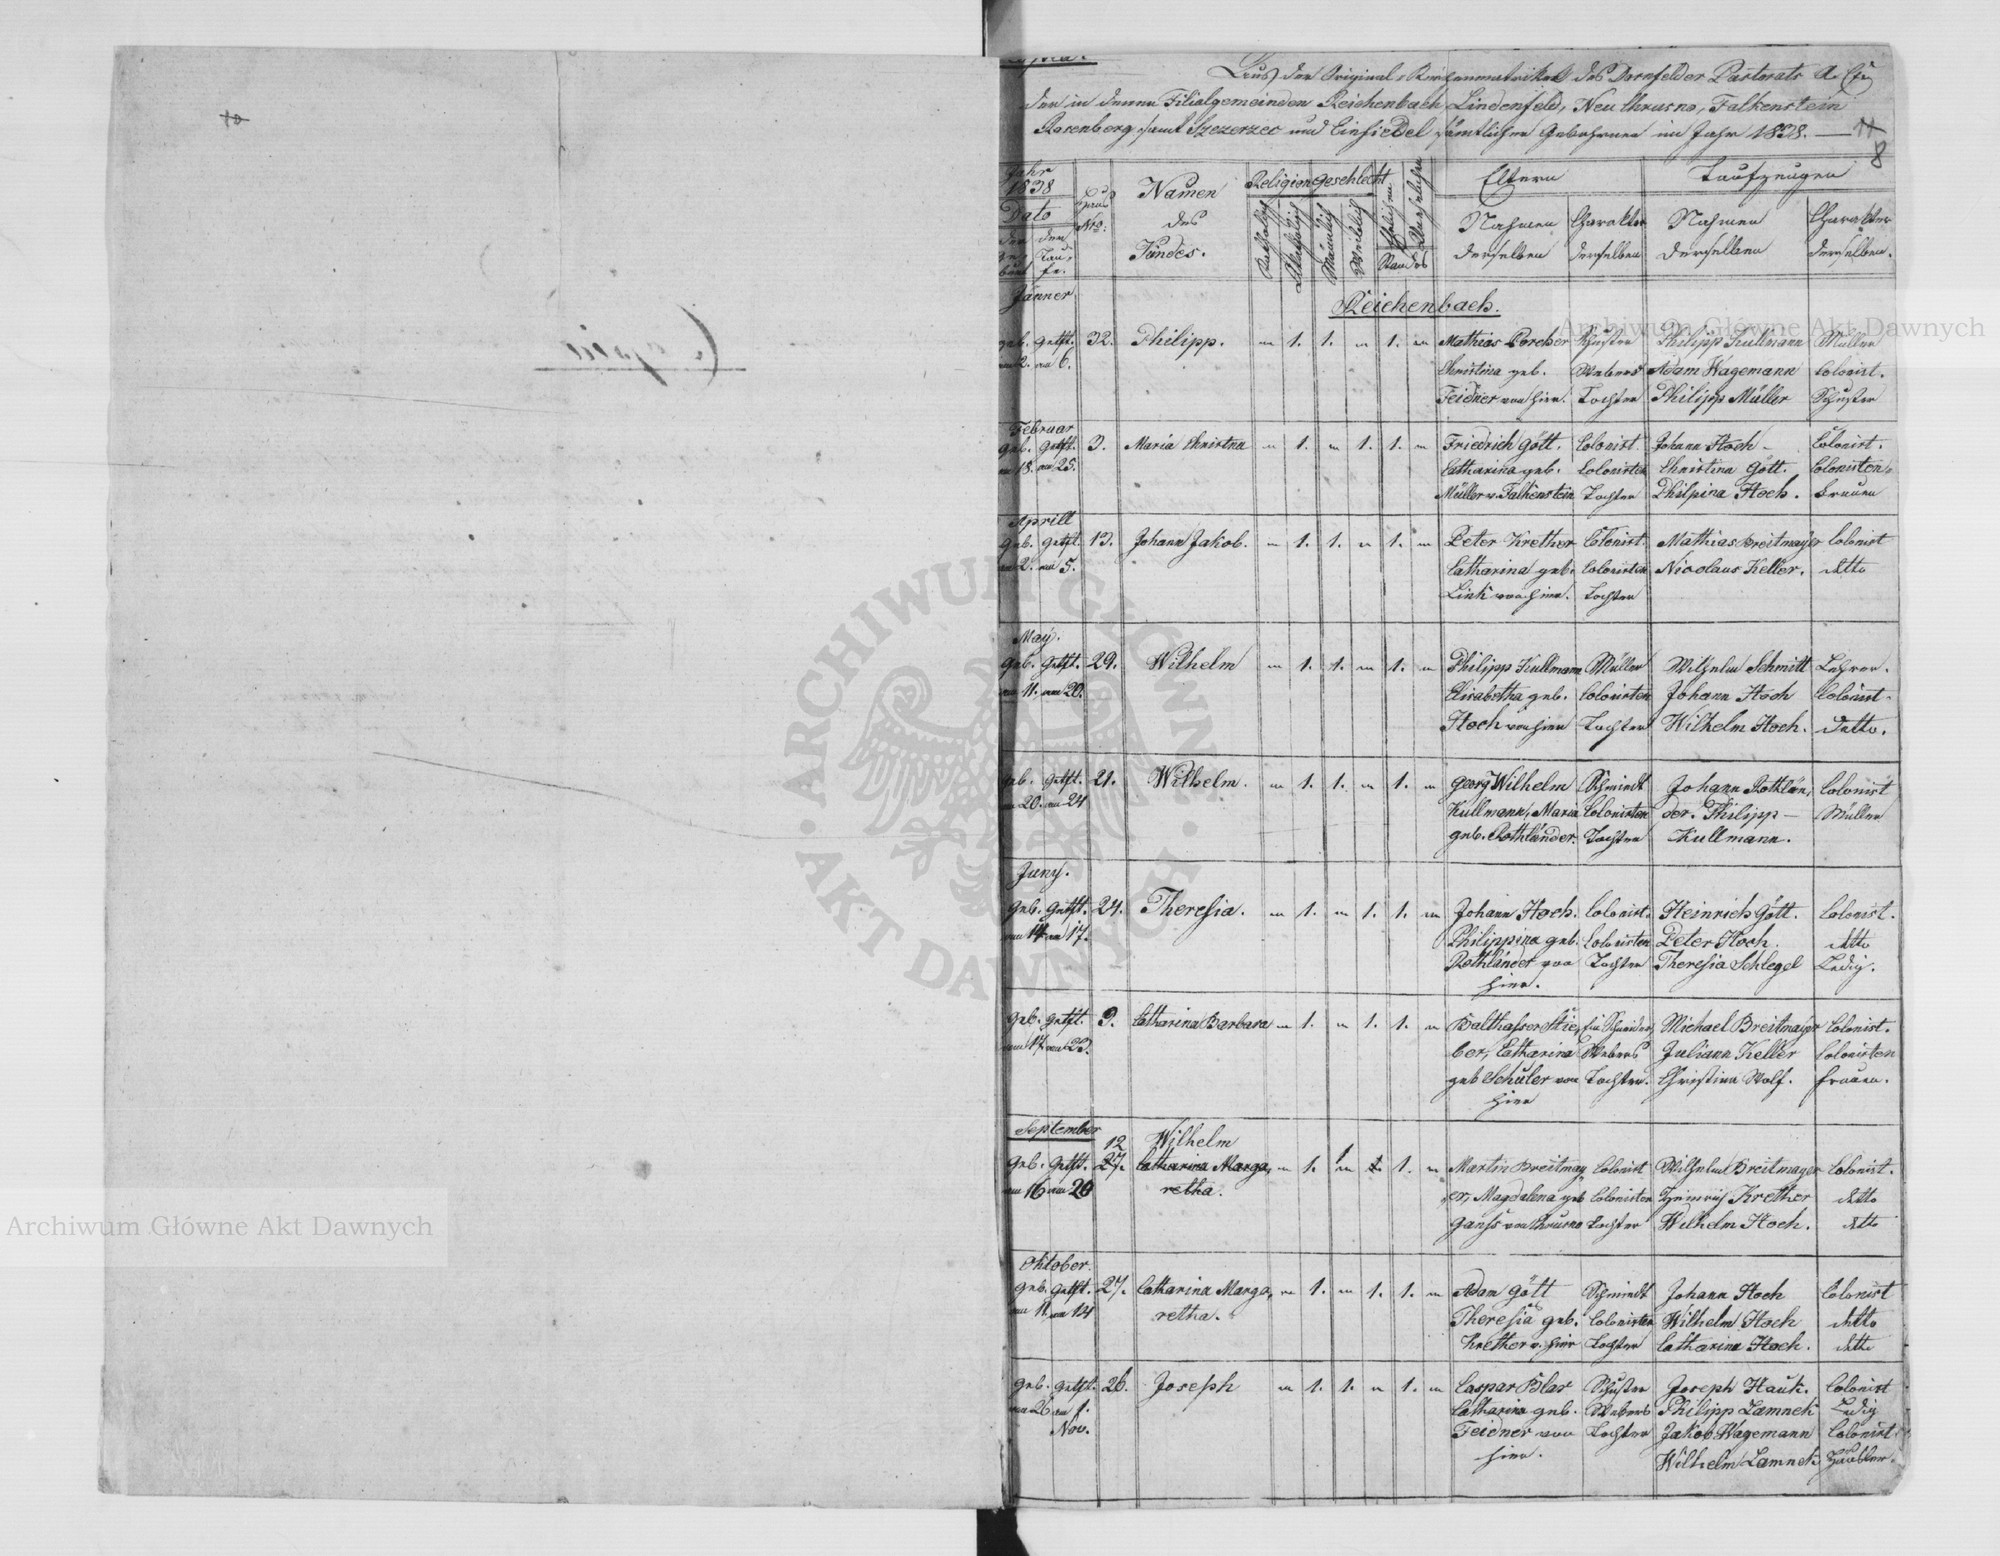 Copia.
Aus der Original-Kirchenmatrikel des Dornfelder Pastorats
der in denen Filialgemeinden Reichenbach, Lindenfeld, Neuchrusno, Falkenstein
Rosenberg, samt Szczerzec und Einsiedel, sämtlicher Gebohrenen im Jahr 1838. — 11
8
Jahr
1838
Dato
der Geburt
der Taufe.
Haus Nro:
Namen
des
Kindes.
Religion
Katholisch
Geschlecht
Männlich
Weiblich
Ehelichen
Unehelichen
Standes
Eltern
Nahmen
derselben
Charakter
derselben
Taufzeugen
Nahmen
derselben
Charakter
derselben.
Jänner
Reichenbach.
geb. getft. 32. Philipp. – 1. 1. – 1. – Mathias Porcher Schuster Philipp Kullmann Müller
am 2. am 6. Christina geb. Webers Adam Wagemann Colonist.
Feidner von hier. Tochter Philipp Müller Schuster
Februar
geb. getft. 3. Maria Christina – 1. – 1. 1. – Friedrich Gött. Colonist. Johann Hoch – Colonist.
am 18. am 25. Catharina geb. Colonisten Christina Gött. Colonisten
Müller v. Falkenstein Tochter Philpina Hoch. Frauen
Aprill
geb. getft. 13. Johann Jakob. – 1. 1. – 1. – Peter Krether Colonist. Mathias Breitmayer Colonist
am 2. am 5. Catharina geb. Colonisten Nicolaus Keller. detto
Link von hier. Tochter
May.
geb. getft. 29. Wilhelm – 1. 1. – 1. – Philipp Kullmann Müller Wilhelm Schmitt Lehrer.
am 11. am 20. Elisabetha geb. Colonisten Johann Hoch Colonist
Hoch von hier Tochter Wilhelm Hoch. detto.
geb. getft. 21. Wilhelm. – 1. 1. – 1. – Georg Wilhelm Schmidt Johann Rothlän- Colonist
am 20. am 24 Kullmann, Maria Colonisten der. Philipp – Müller
geb. Rothländer. Tochter Kullmann.
Juny.
geb. getft. 24. Theresia. – 1. – 1. 1. – Johann Hoch. Colonist. Heinrich Gött. Colonist.
am 14 am 17. Philippina geb. Colonisten Peter Hoch. detto
Rothländer von Tochter Theresia Schlegel Ledig.
hier.
geb. getft. 3. Catharina Barbara – 1. – 1. 1. – Balthasser Stie- Michael Breitmayer Colonist.
am 17 am 23. ber, Catharina Webers Juliann Keller Colonisten
geb Schüler von Tochter. Christina Wolf. Frauen.
hier
September
12 Wilhelm
geb. getft. 27. Catharina Marga- – 1. 1 1. 1. – Martin Breitmay- Colonist Wilhelm Breitmayer Colonist.
am 16 am 20 retha. er, Magdalena geb Colonisten Heinrich Krether detto
Ganss von Chrusno Tochter Wilhelm Hoch. detto
Oktober.
geb. getft. 27. Catharina Marga- – 1. – 1. 1. – Adam Gött Schmidt Johann Hoch Colonist
am 11 am 14 retha. Theresia geb. Colonisten Wilhelm Hoch detto
Krether v. hier Tochter Catharina Hoch. detto
geb. getft. 26. Joseph – 1. 1. – 1. – Caspar Blar Schuster Joseph Hauk. Colonist
am 26 am 1. Catharina geb. Webers Philipp Lamnek Ledig
Nov. Feidner von Tochter Jakob Wagemann Colonist.
hier. Wilhelm Lamnek Häusler.
Archiwum Główne Akt Dawnych
Archiwum Główne Akt Dawnych
ARCHIWUM GŁÓWNE · AKT DAWNYCH ·